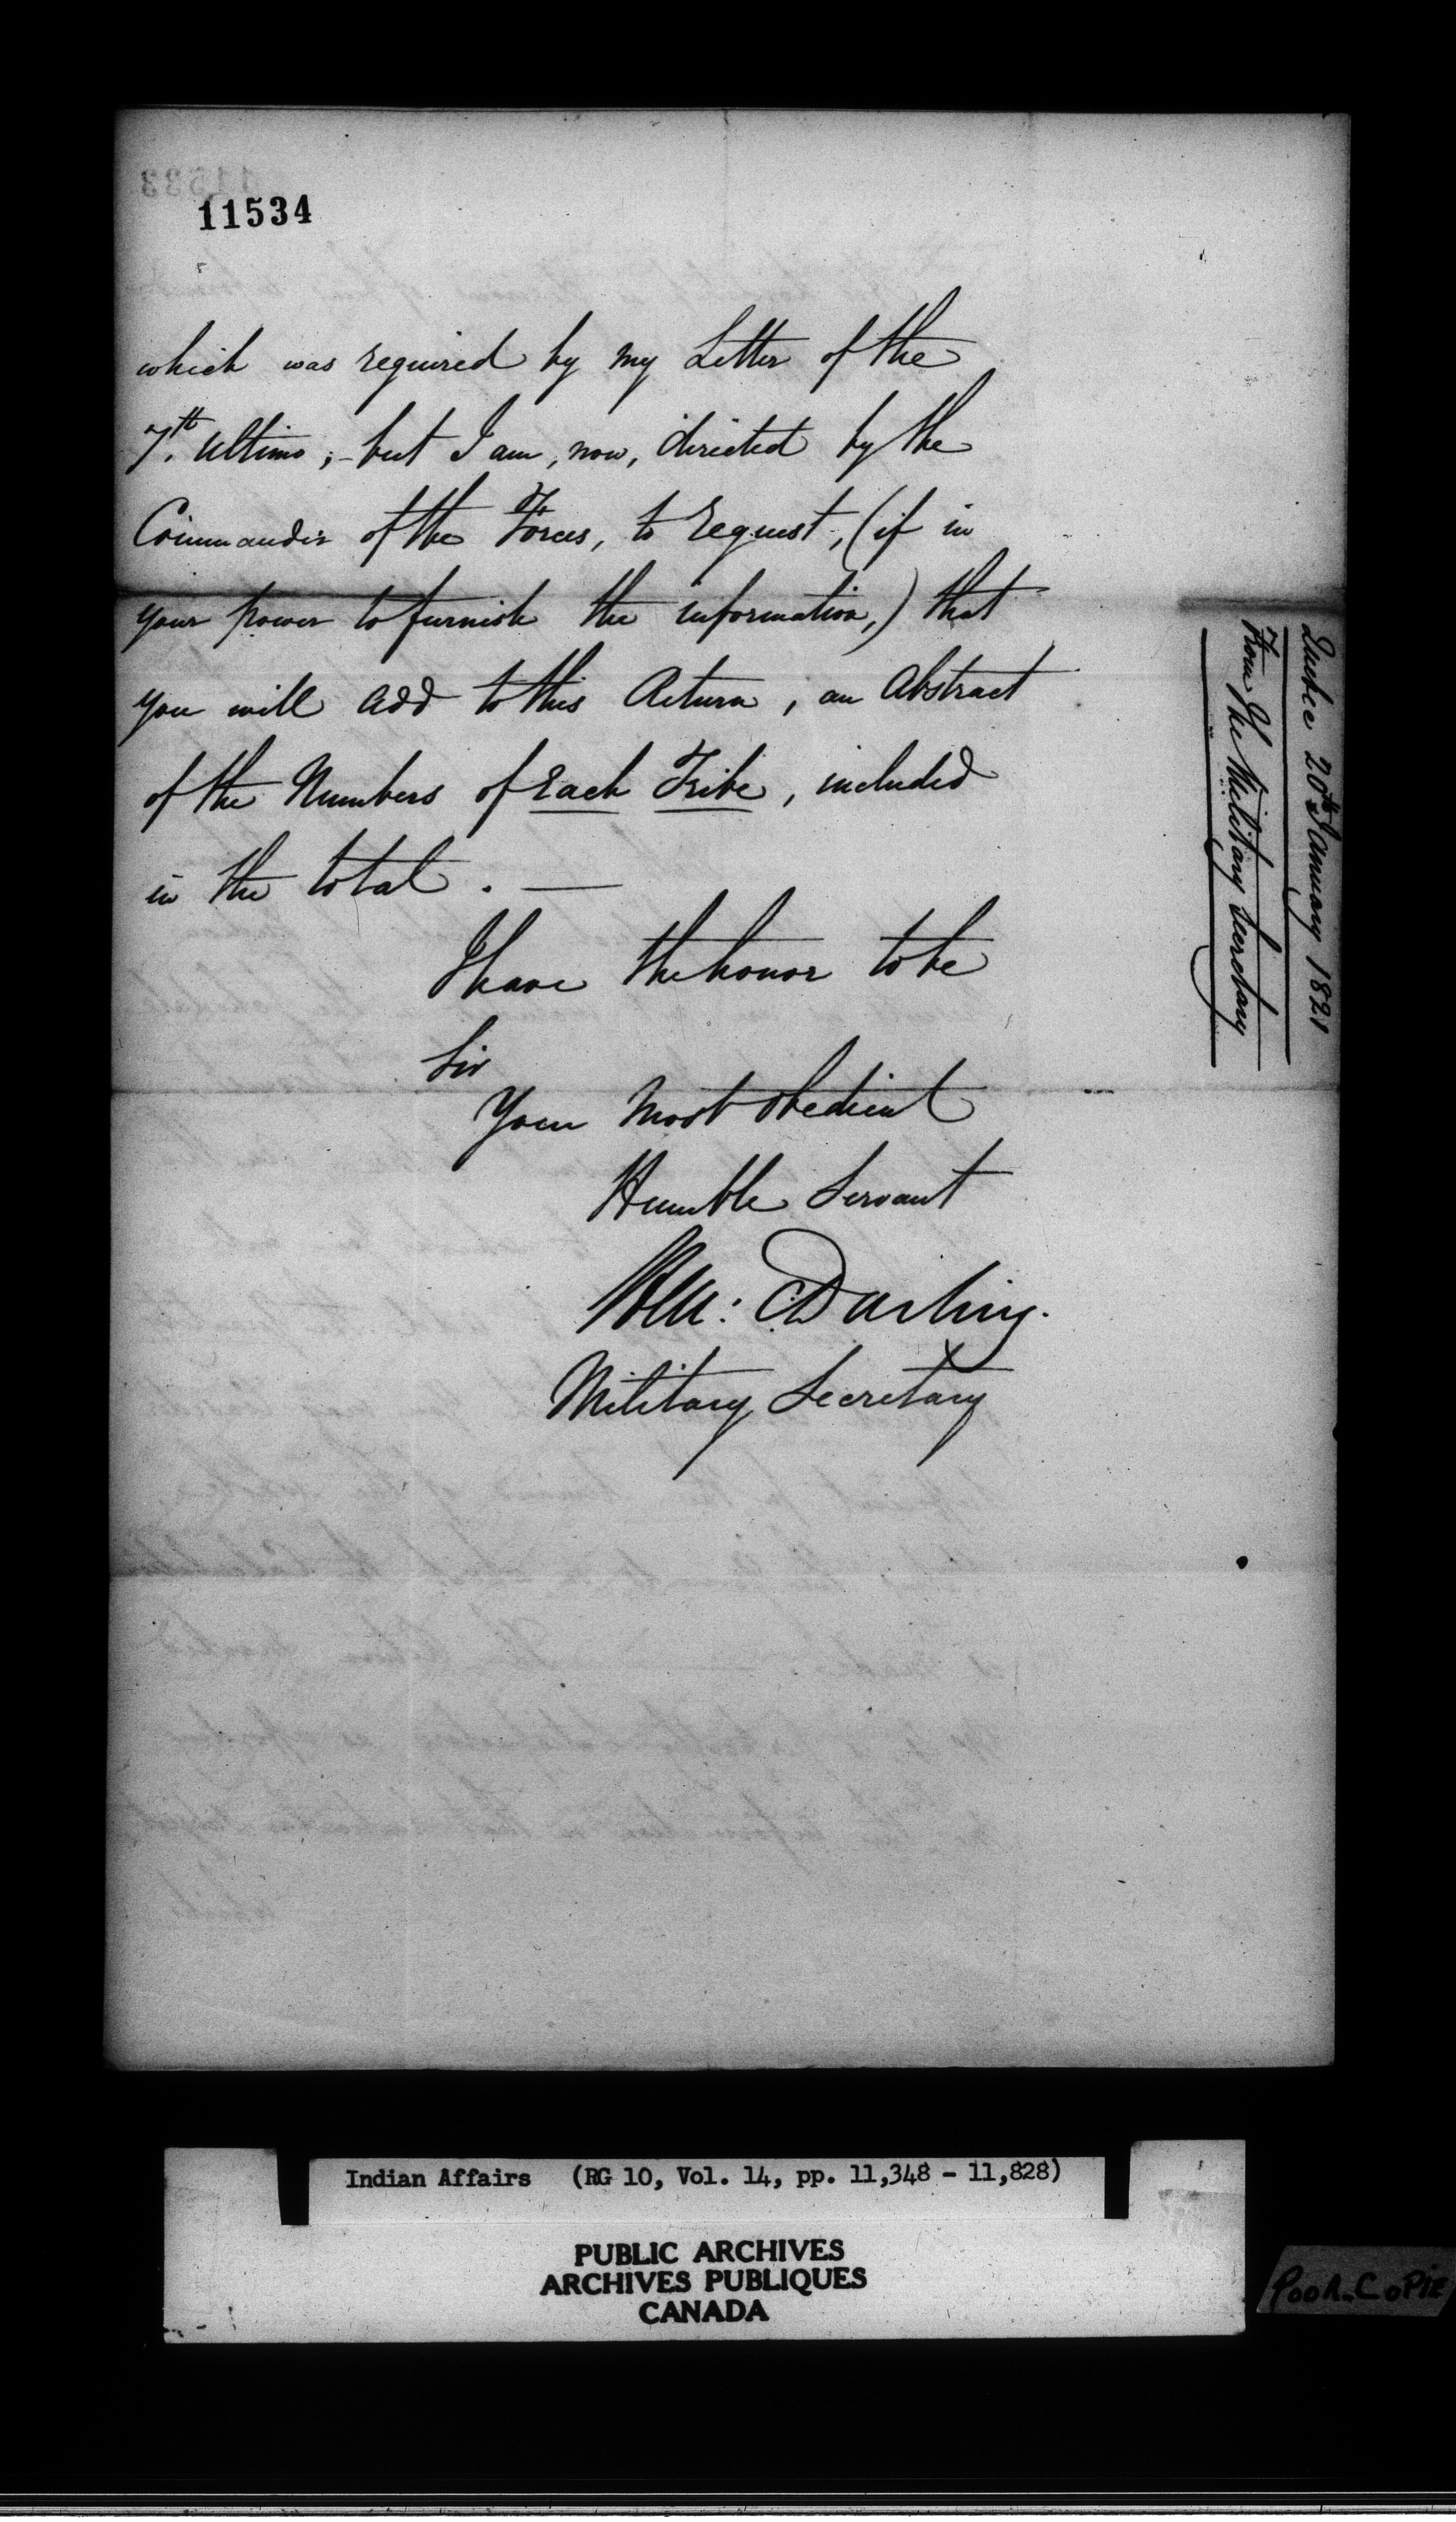 11533
11534
which was required by my Letter of the
7th. Ultimo ; - but I am, now, directed by the
Commander of the Forces, to request, (if in
your power to furnish the information,) that
you will add to this Return, an Abstract
of the Numbers of Each Tribe, included
in the total . —
I have the honor to be
Sir
Your Most obedient
Humble Servant
Darling.
Military Secretary
Quebec 20th January 1821
From The Military Secretary
Indian Affairs (RG 10, Vol. 14, pp. 11,348 - 11,828)
PUBLIC ARCHIVES
ARCHIVES PUBLIQUES
CANADA
POOR-COPIE